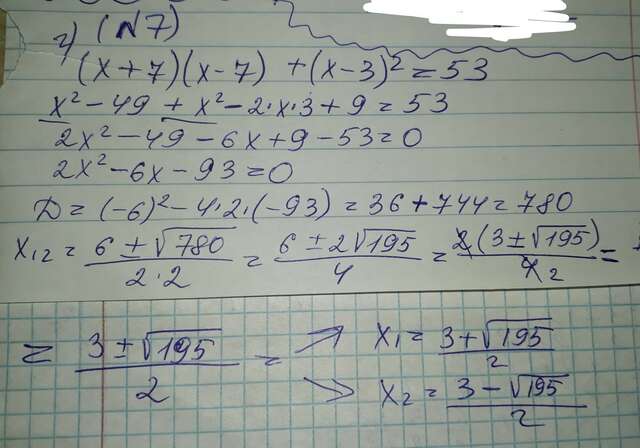 г) (N7)
(x+7)(x-7) + (x-3)² = 53
x² - 49 + x² - 2·x·3 + 9 = 53
2x² - 49 - 6x + 9 - 53 = 0
2x² - 6x - 93 = 0
D = (-6)² - 4·2·(-93) = 36 + 744 = 780
x₁₂ = (6 ± √780)/(2·2) = (6 ± 2√195)/4 = (2(3 ± √195))/(4 2) =
= (3 ± √195)/2 = → x₁ = (3 + √195)/2
→ x₂ = (3 - √195)/2